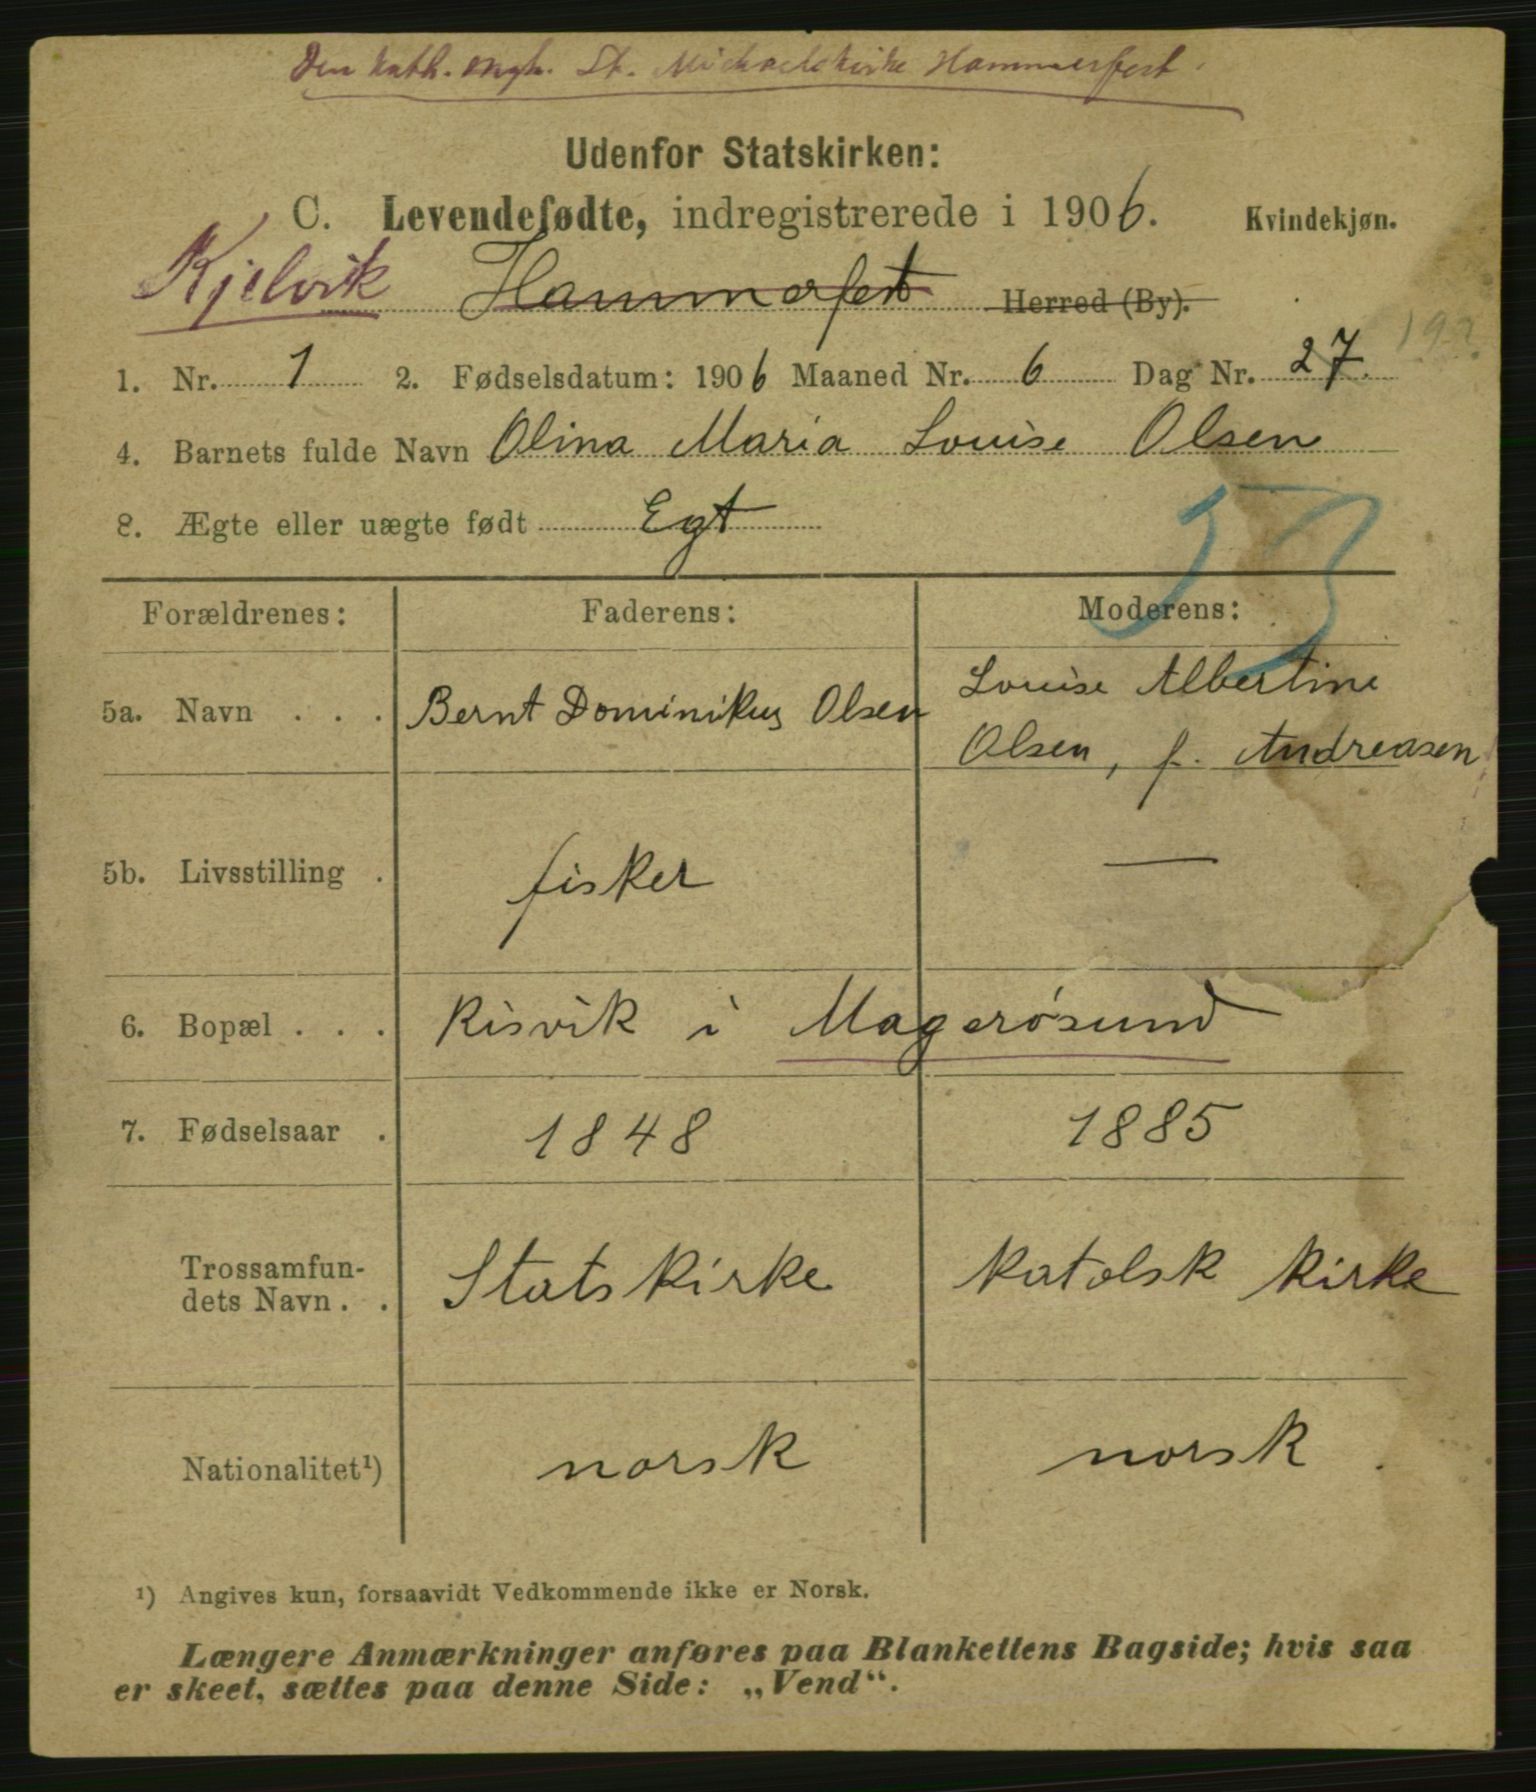 Den kath. mgh. St. Michaelskirke Hammerfest.
Udenfor Statskirken:
C. Levendefødte, indregistrerede i 1906. Kvindekjøn.
Kjelvik Hammerfest Herred (By).
1. Nr. 1 2. Fødselsdatum: 1906 Maaned Nr. 6 Dag Nr. 27.
4. Barnets fulde Navn Olina Maria Louise Olsen
8. Ægte eller uægte født Egt
Forældrenes: Faderens: Moderens:
5a. Navn . . . Bernt Dominikus Olsen Louise Albertine
Olsen, f. Andreasen
5b. Livsstilling . fisker —
6. Bopæl . . . Risvik i Magerösund
7. Fødselsaar . 1848 1885
Trossamfun-
dets Navn . . Statskirke Katolsk Kirke
Nationalitet¹) norsk norsk.
¹) Angives kun, forsaavidt Vedkommende ikke er Norsk.
Længere Anmærkninger anføres paa Blankettens Bagside; hvis saa
er skeet, sættes paa denne Side: „Vend“.